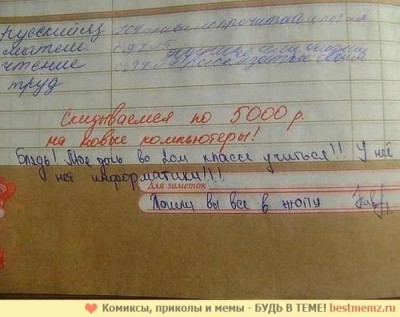 русский яз
матем
чтение
труд
Скидываемся по 5000 р.
на новые компьютеры!
Блядь! Моя дочь во 2ом классе учиться!! У неё
нет информатики!!!
Для заметок
Пошли вы все в жопу
Комиксы, приколы и мемы - БУДЬ В ТЕМЕ! bestmemz.ru